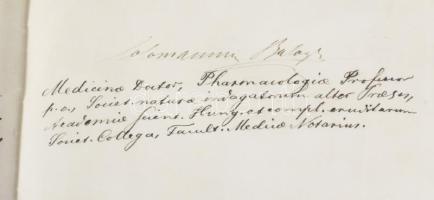 Colomannus Balogh
Medicinæ Doctor, Pharmacologiæ Professor
p. o., Societ. naturæ indagatorum alter Præses,
Academiæ Scient. Hung. et compl. eruditarum
Societ. Collega, Facult. Medicæ Notarius.